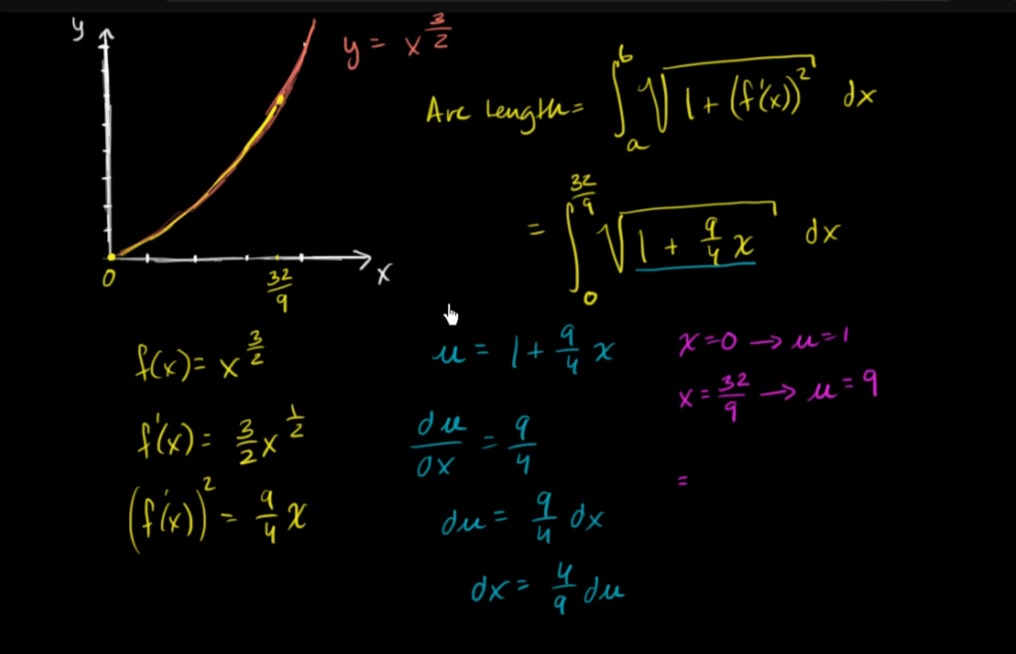 y
y = x^{3/2}
Arc Length = ∫_a^b √(1 + (f'(x))^2) dx
= ∫_0^{32/9} √(1 + 9/4 x) dx
0
32/9
x
f(x) = x^{3/2}
f'(x) = 3/2 x^{1/2}
(f'(x))^2 = 9/4 x
u = 1 + 9/4 x
du/dx = 9/4
du = 9/4 dx
dx = 4/9 du
x=0 → u=1
x = 32/9 → u = 9
=